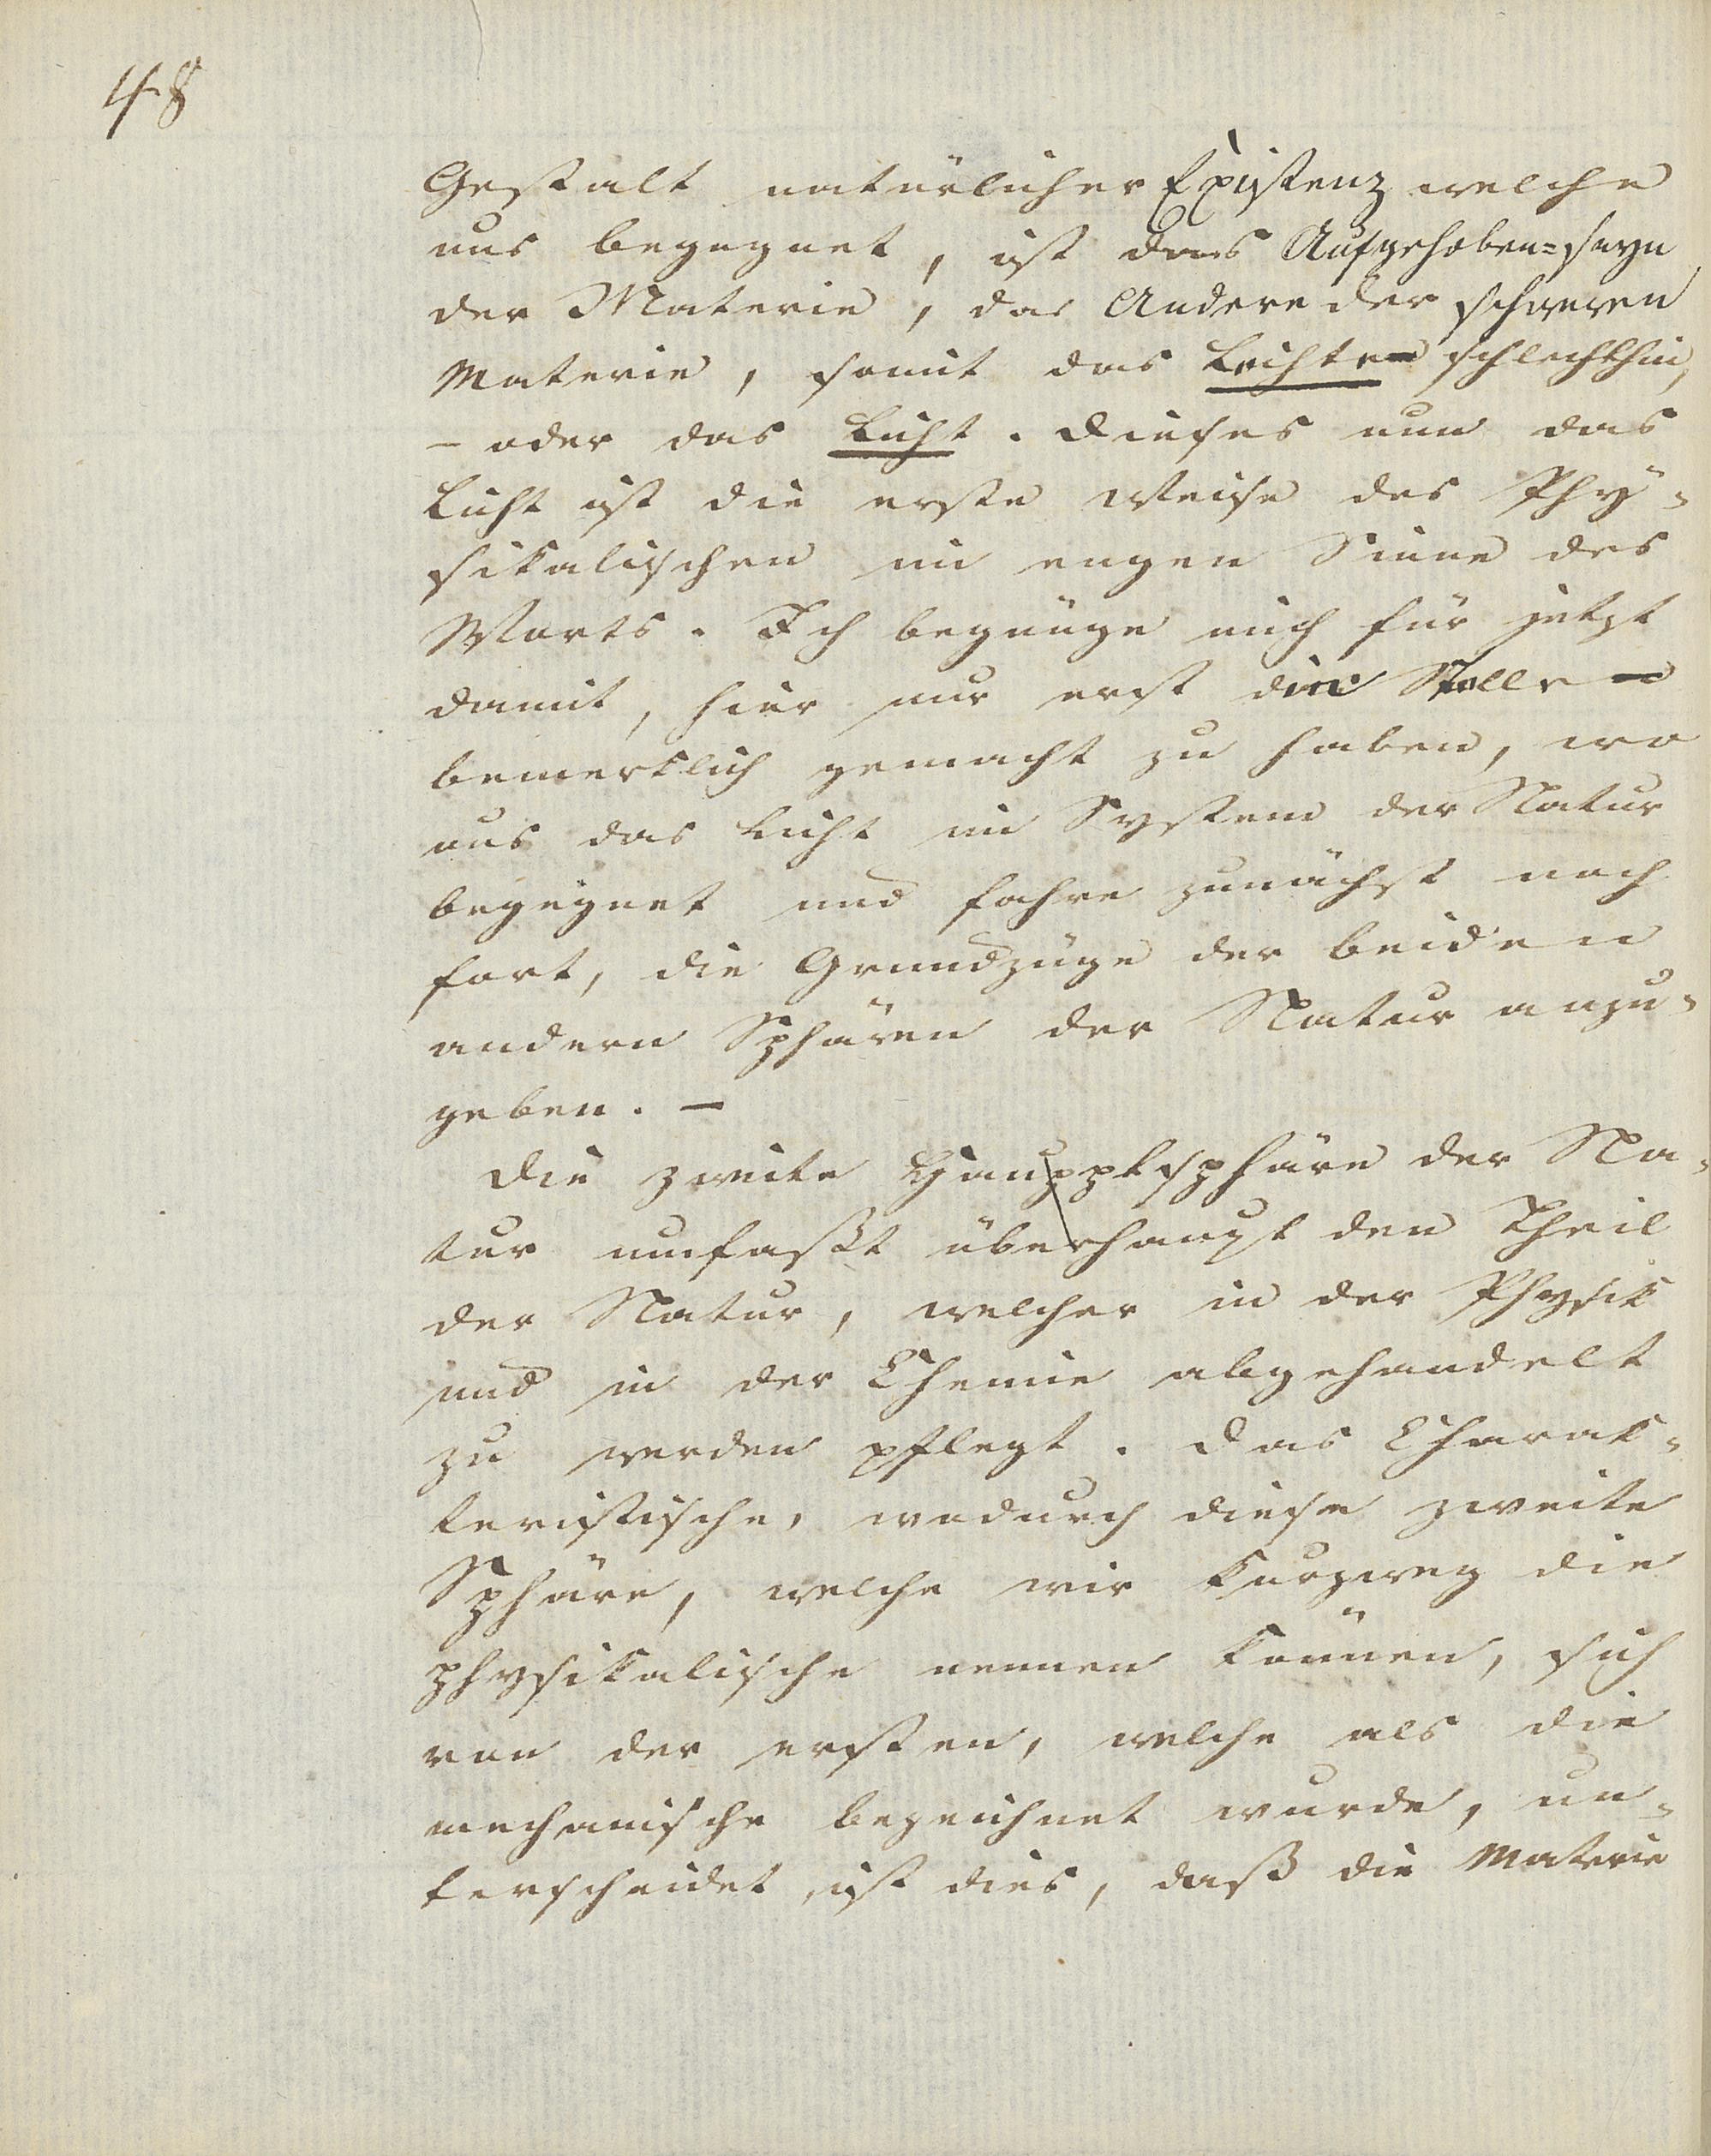 48
Gestalt natürlicher Existenz welche
uns begegnet, ist das Aufgehoben=seyn
der Materie, das Andere der schweren
Materie, somit das Leichte schlechthin,
– oder das Licht. Dieses nun das
Licht ist die erste Weise des Phy=
sikalischen im engen Sinne des
Worts. Ich begnüge mich für jetzt
damit, hier nur erst die Stelle
bemerklich gemacht zu haben, wo
uns das Licht im System der Natur
begegnet und fahre zunächst noch
fort, die Grundzüge der beiden
andern Sphären der Natur anzu=
geben. –
Die zweite Hauptsphäre der Na=
tur umfaßt überhaupt den Theil
der Natur, welcher in der Physik
und in der Chemie abgehandelt
zu werden pflegt. Das Charak=
teristische, wodurch diese zweite
Sphäre, welche wir kurzweg die
physikalische nennen können, sich
von der ersten, welche als die
mechanische bezeichnet wurde, un=
terscheidet, ist dies, daß die Materie